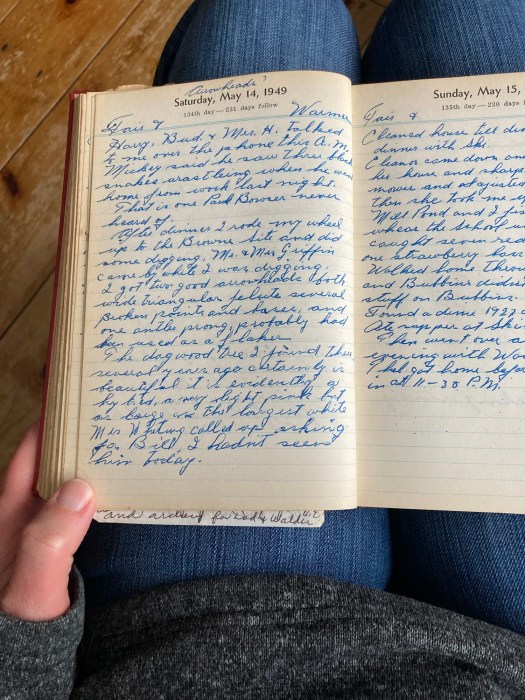 Arrowheads?
Saturday, May 14, 1949
134th day—231 days follow
Fair & Warmer
Harry, Bud & Mrs. H. talked
to me over the phone this A.M.
Mickey said he saw three black
snakes wrastleing when he went
home from work last night.
That is one Paul Bowser never
heard of.
After dinner I rode my wheel
up to the Browne Site and did
some digging. Mr. & Mrs Griffin
came by while I was digging.
I got two good arrowheads both
wide triangular felsite several
broken points and bases, and
one antler prong, probably had
been used as a flaker
The dogwood tree I found there
several years ago certainly is
beautiful it is evidently a
hybrid, a very light pink but
as large as the largest white
Mrs Whiting called up asking
for Bill, I hadn't seen
him today.
and archery for Dad & Walder
Sunday, May 15,
135th day—230 days
Fair &
Cleaned house till
dinner with Ski
Eleanor came down
her house and
mower and adjusted
then she took me
Mill Pond and I
whear the school
caught seven
one strawberry
Walked home
and Bubbins
stuff on Bubbins.
Found a dime 1927
Ate supper at
Then went over
evening with
I hal got home
in at 11-30 P.M.